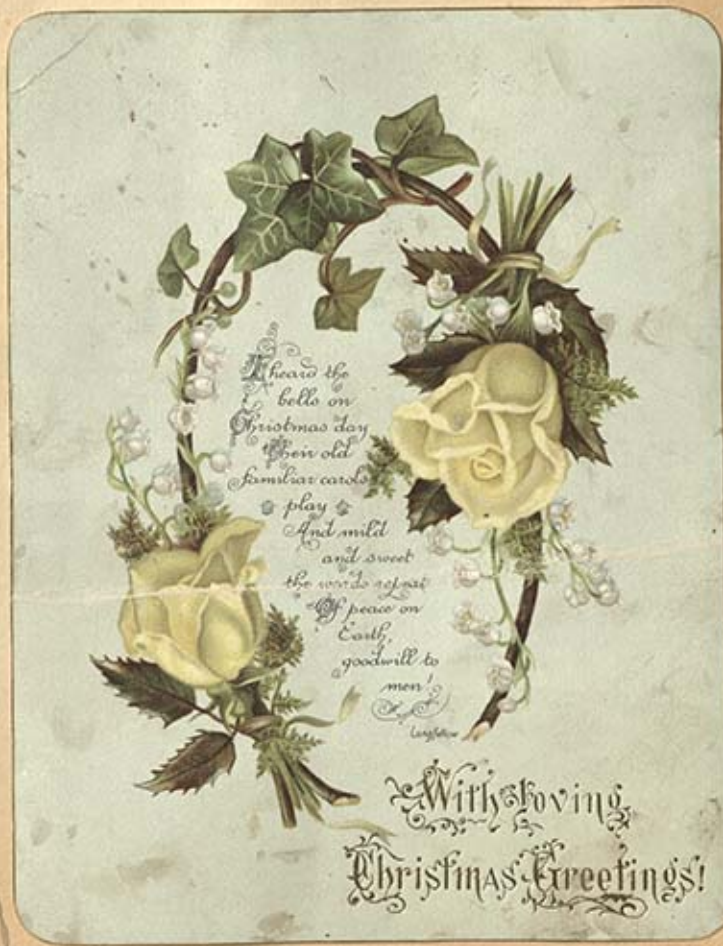 I heard the
bells on
Christmas day
Their old
familiar carols
play
And mild
and sweet
the words repeat
Of peace on
Earth,
goodwill to
men!
Longfellow
With Loving
Christmas Greetings!